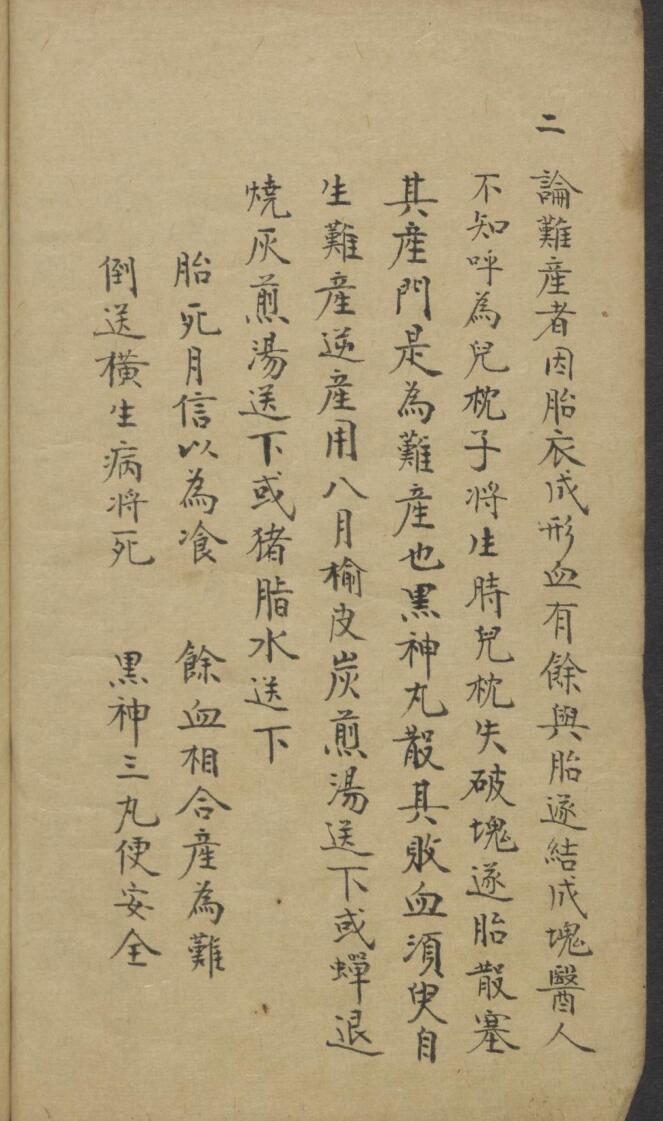 二 論難產者因胎衣成形血有餘與胎遂結成塊醫人
不知呼為兒枕子將生時兒枕失破塊遂胎散塞
其產門是為難產也黑神丸散其敗血須臾自
生難產逆產用八月榆皮炭煎湯送下或蟬退
燒灰煎湯送下或猪脂水送下
胎死月信以為飡 餘血相合產為難
倒送橫生病將死 黑神三丸便安全